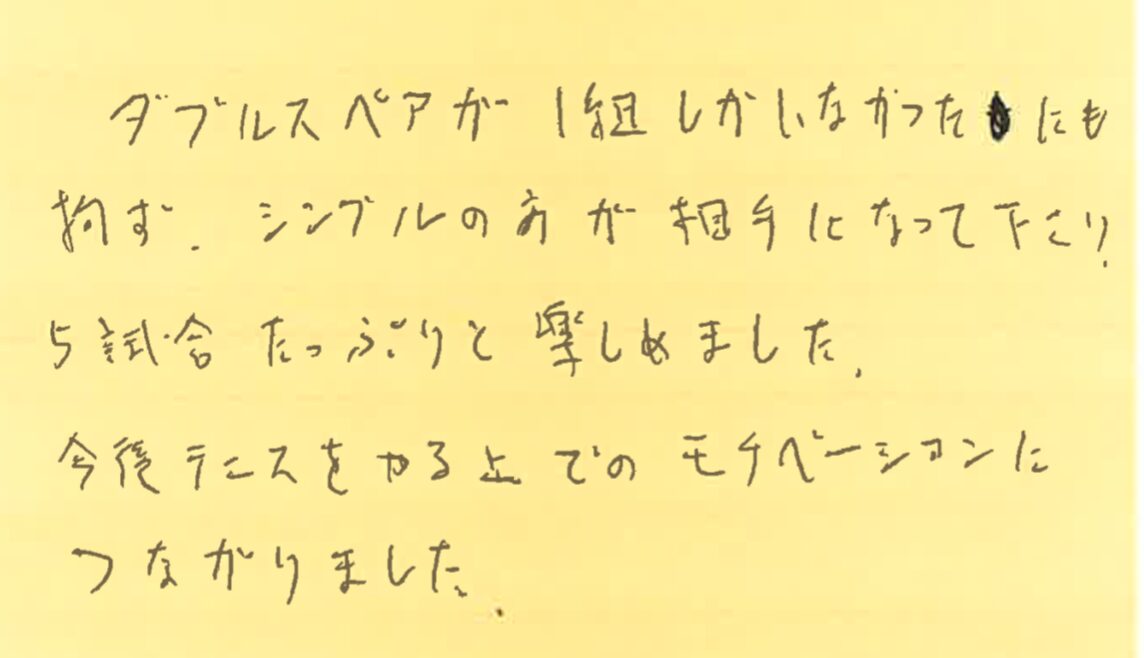 ダブルスペアが1組しかいなかったにも
拘ず、シングルの方が相手になって下さり、
5試合たっぷりと楽しめました。
今後テニスをやる上でのモチベーションに
つながりました。